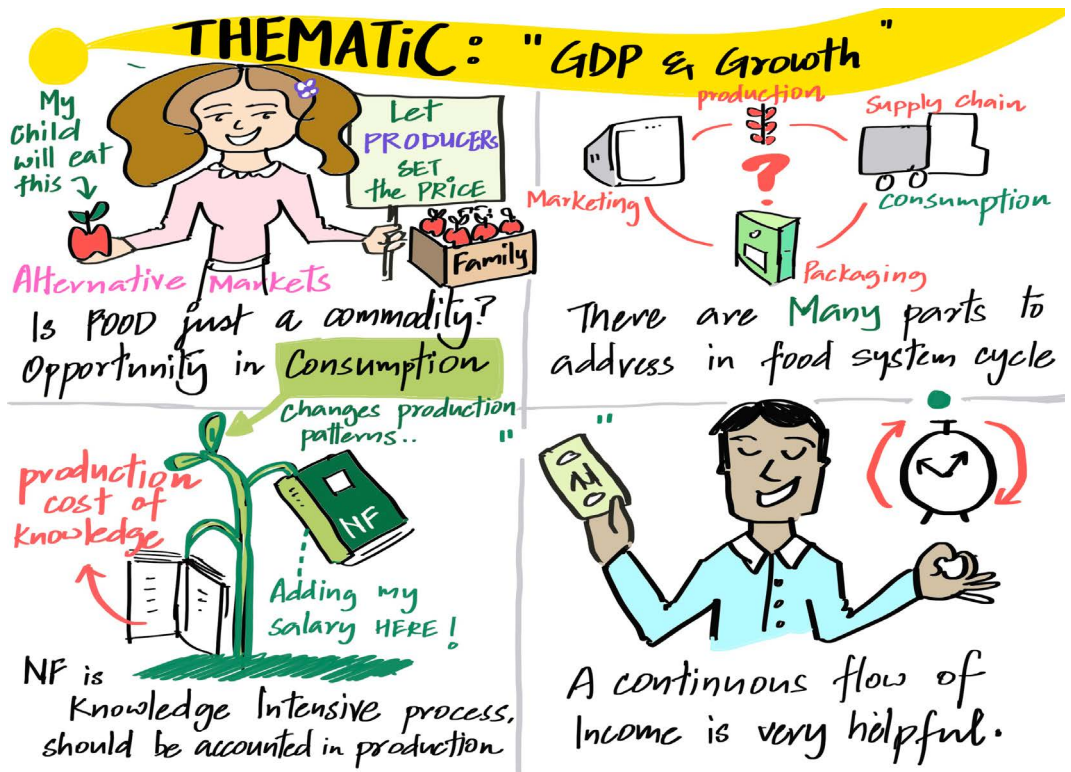 THEMATiC: "GDP & Growth"
My
Child
will eat
this
Let
PRODUCERS
SET
the PRICE
Family
Alternative Markets
Is FOOD just a commodity?
Opportunity in Consumption
production
Supply Chain
Marketing
Consumption
Packaging
There are Many parts to
address in food system cycle
changes production
patterns..
production
cost of
knowledge
NF
Adding my
salary HERE!
NF is
Knowledge Intensive process,
should be accounted in production
" "
A continuous flow of
Income is very helpful.